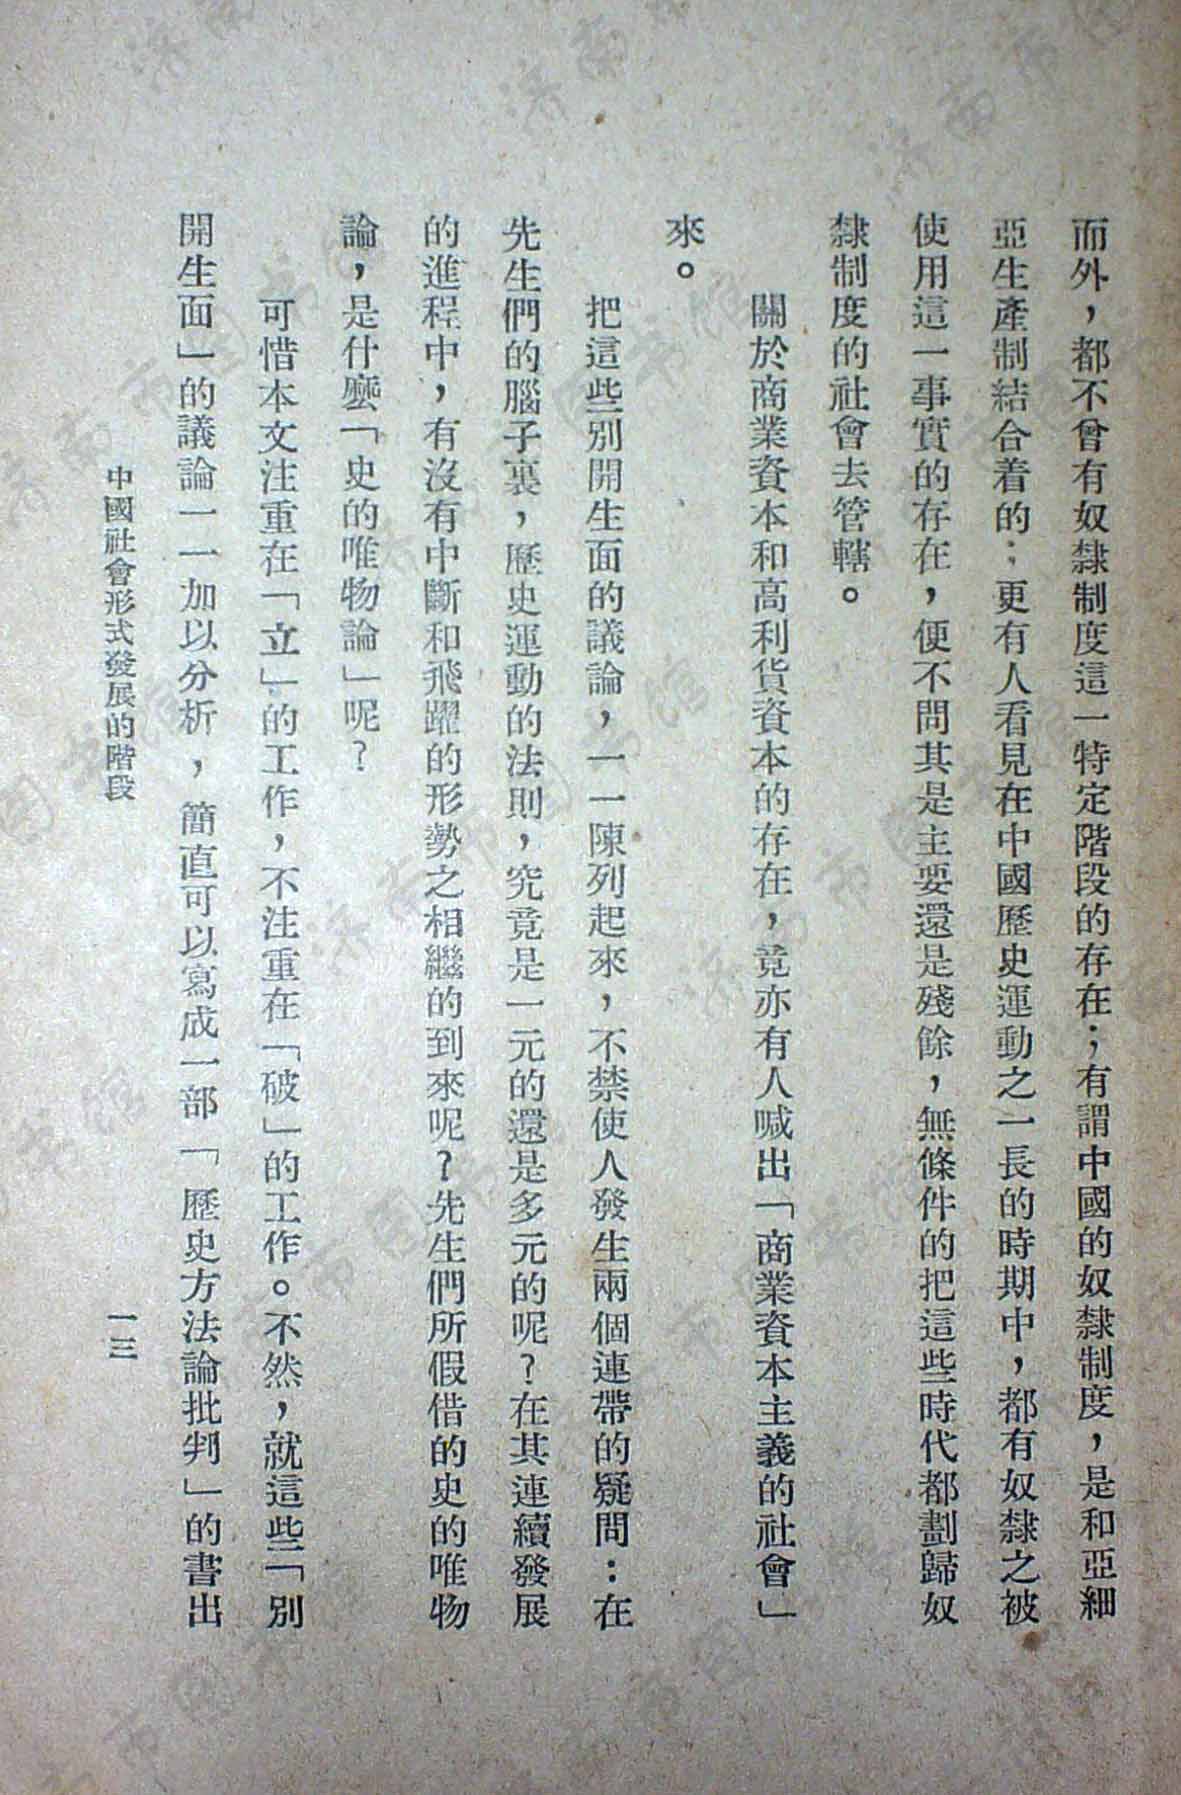 而外，都不曾有奴隸制度這一特定階段的存在；有謂中國的奴隸制度，是和亞細
亞生產制結合着的；更有人看見在中國歷史運動之一長的時期中，都有奴隸之被
使用這一事實的存在，便不問其是主要還是殘餘，無條件的把這些時代都劃歸奴
隸制度的社會去管轄。
關於商業資本和高利貨資本的存在，竟亦有人喊出「商業資本主義的社會」
來。
把這些別開生面的議論，一一陳列起來，不禁使人發生兩個連帶的疑問：在
先生們的腦子裏，歷史運動的法則，究竟是一元的還是多元的呢？在其連續發展
的進程中，有沒有中斷和飛躍的形勢之相繼的到來呢？先生們所假借的史的唯物
論，是什麼「史的唯物論」呢？
可惜本文注重在「立」的工作，不注重在「破」的工作。不然，就這些「別
開生面」的議論一一加以分析，簡直可以寫成一部「歷史方法論批判」的書出
中國社會形式發展的階段
一三
济南市图书馆